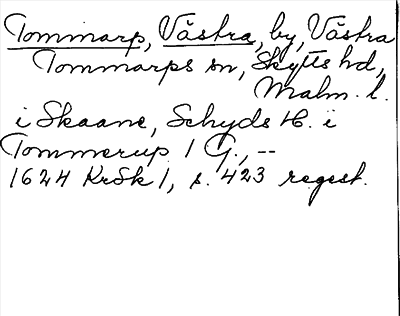 Tommarp, Västra, by, Västra
Tommarps sn, Skytts hd,
Malm. l.
i Skaane, Schyds H. i
Tommerup 1 G., --
1624 KrSk 1, s. 423 regest.